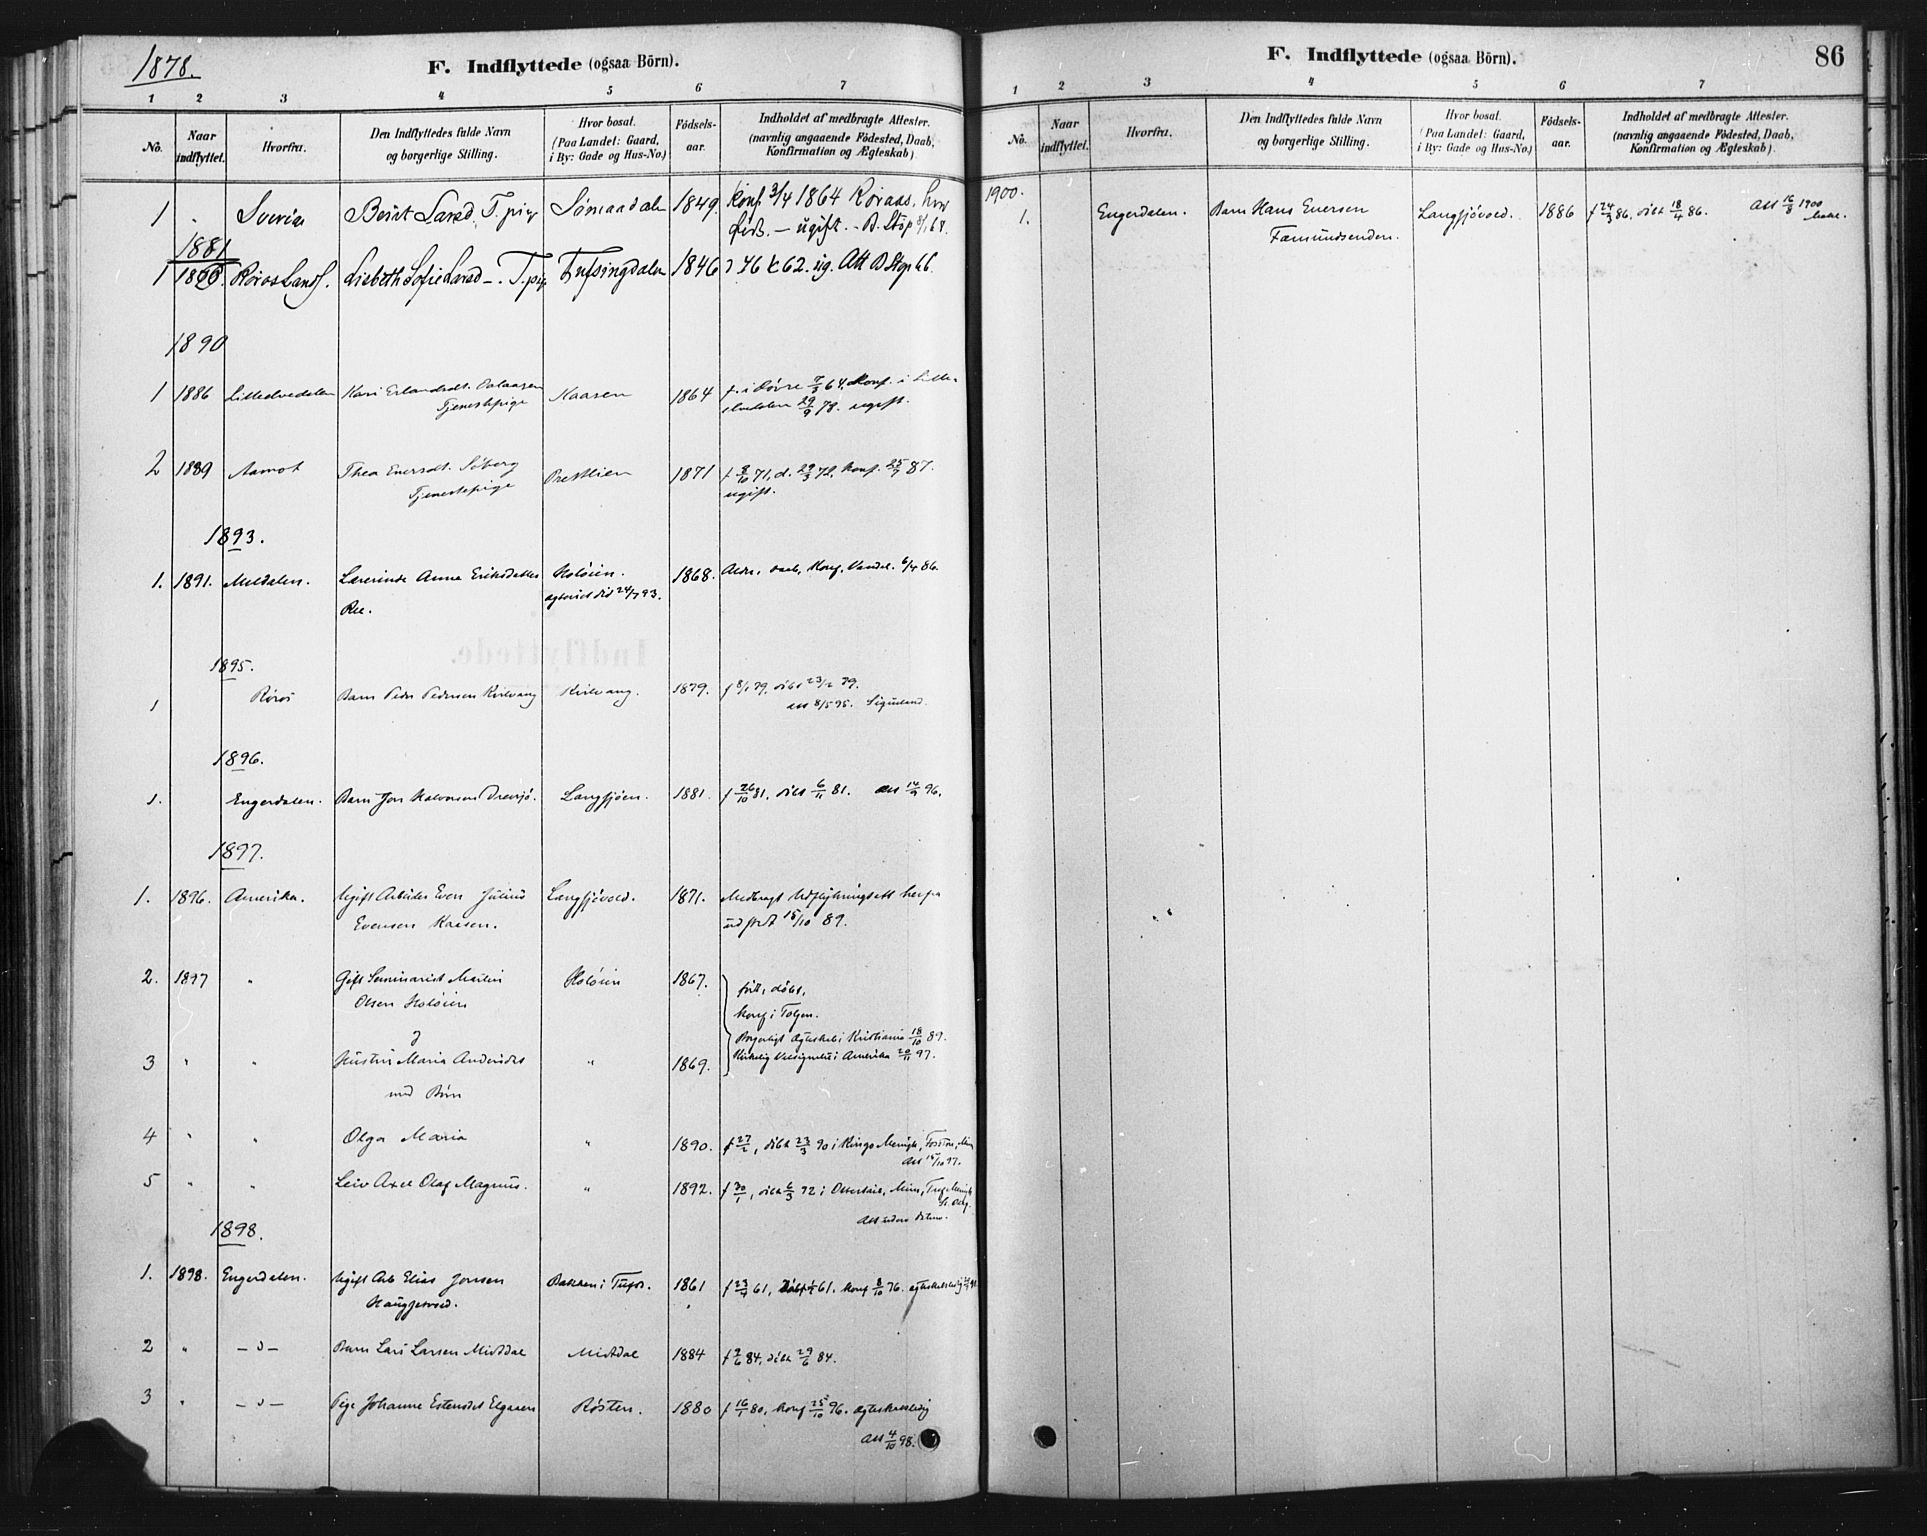 1878.
F. Indflyttede (ogsaa Börn).
1 2 3 4 5 6 7
No.
Naar indflyttet.
Hvorfra.
Den Indflyttedes fulde Navn og borgerlige Stilling.
Hvor bosat. (Paa Landet: Gaard, i By: Gade og Hus-No.)
Födsels-aar.
Indholdet af medbragte Attester. (navnlig angaaende Födested, Daab, Konfirmation og Ægteskab)
1 Sverie Berit Larsd. T. pige Sömaadalen 1849 Konf 3/4 1864 Röraas,
ugift.
1881
1 Röros Lands. Lisbeth Sofie Larsd -. T. pige Tufsingdalen 1846
1890
1 1886 Lilleelvedalen Kari Erlandsdt. Kaasen 1864 f. i Dovre 7/3 64, Konf. i Lille-
Tjenestepige elvedalen 29/9 78. ugift.
2 1889 Aamot Thea Eversdt. Söberg Prestlien 1871 f 8/10 71, d. 29/3 72, konf. 25/9 87.
Tjenestepige ugift.
1893.
1. 1891. Meldalen. Lærerinde Anna Eriksdatter Holöien. 1868. Alder, daab, Konf, Vandel. 6/4 86.
Ree. 24/7 93.
1895.
1 Röros Barn Peder Pedersen Kirkvang Kirkvang. 1879. f 8/1 79, döbt 23/2 79.
att 8/5 95.
1896.
1. Engerdalen. Barn Jon Halvorsen Drevsjö. Langsjöen. 1881. f 26/10 81, döbt 6/11 81. att 14/9 96.
1897.
1. 1896. Amerika. Ugift Arbeider Even Julius Langsjövold. 1871. Medbragt Udflytningsatt herfra
Evensen Kaasen. udstedt 15/10 89.
2. 1897 " Gift Seminarist Martin Holöien 1867. född, döbt,
Olsen Holöien konf i Tolgen.
& Borgerligt Ægteskab i Kristiania 18/10 89.
3 " " Hustru Maria Andersdt " 1869. Kirkelig Velsignelse i Amerika 20/11 97.
med Börn
4 " " Olga Maria " 1890. f 27/2, döbt 23/3 90 i Kings Menigh, Fosston, Min
Att 15/10 97.
5 " " Leiv Axel Olaf Magnus. " 1892. f 30/1, döbt 6/3 92 i Ottertail, Minn,
1898.
1. 1898. Engerdalen. Ugift Arb Elias Jonsen Bakken i Tufs. 1861 f 23/4 61, konf 8/10 76.
Hauggjervold.
2 " -"- Barn Lars Larsen Mistdal Mistdal 1884 f 2/6 84, döbt 29/6 84.
3 " -"- Pige Johanne Estensdt Elgaaen Rösten. 1880 f 16/1 80, konf 25/10 96. ægteskabsledig
Att 4/10 98.
F. Indflyttede (ogsaa Börn).
86
1 2 3 4 5 6 7
No.
Naar indflyttet.
Hvorfra.
Den Indflyttedes fulde Navn og borgerlige Stilling.
Hvor bosat. (Paa Landet: Gaard, i By: Gade og Hus-No.)
Födsels-aar.
Indholdet af medbragte Attester. (navnlig angaaende Födested, Daab, Konfirmation og Ægteskab)
1900.
1. Engerdalen. Barn Hans Eversen Langsjövold. 1886 f 24/3 86, döbt 18/4 86. Att 16/8 1900
Fæmundsenden.